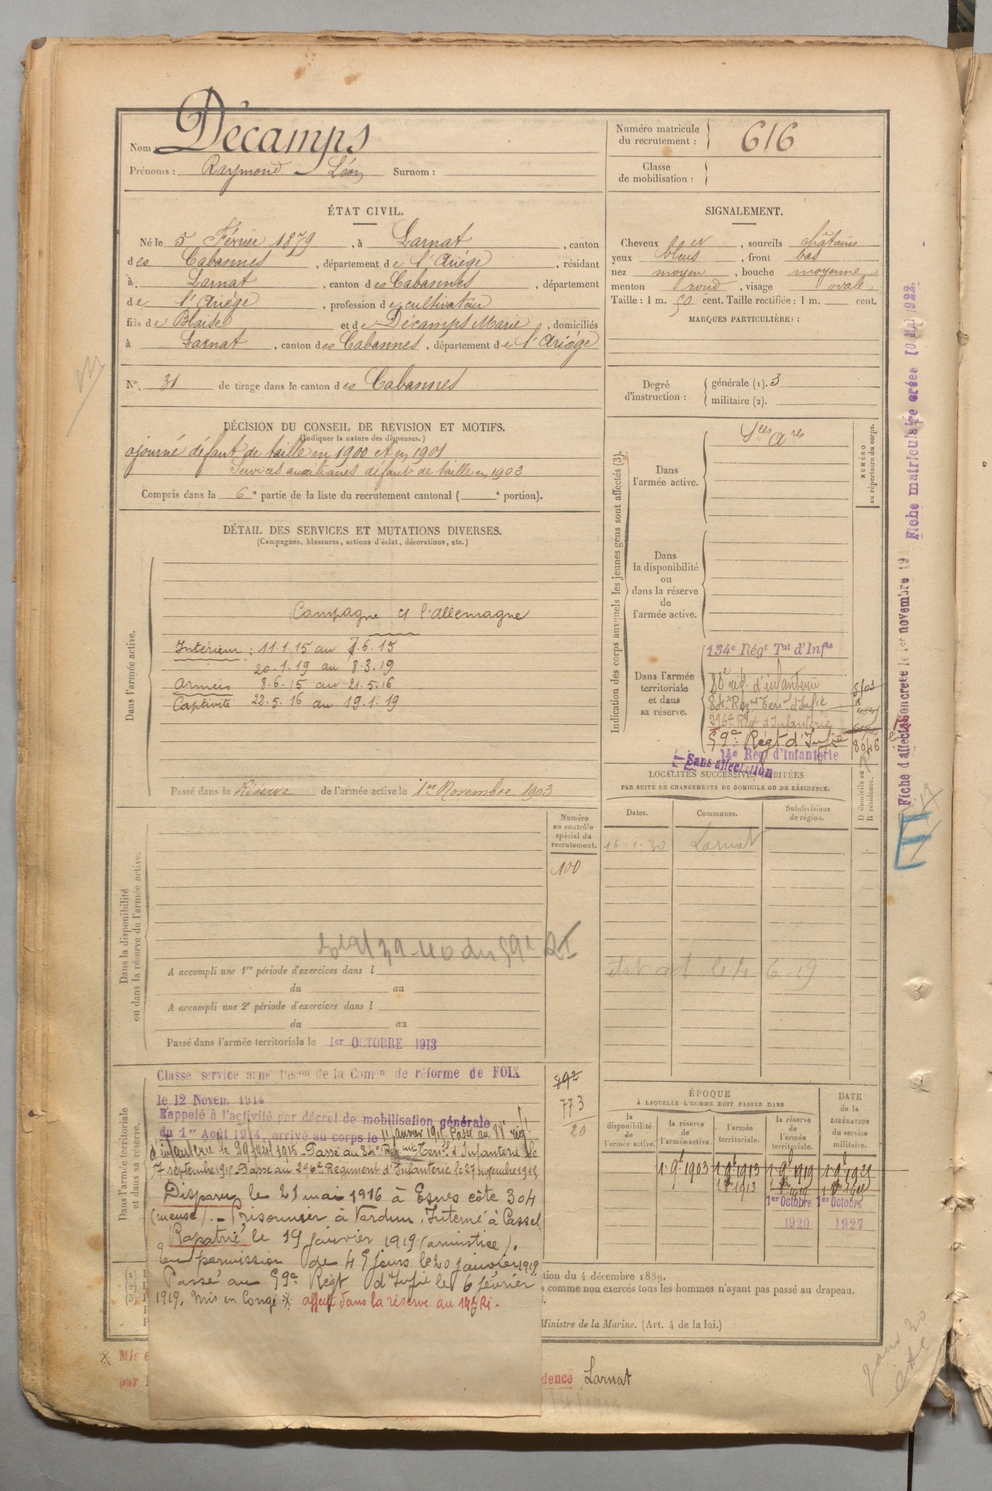 Nom Décamps
Prénoms : Raymond Léon Surnom :
Numéro matricule du recrutement : 616
Classe de mobilisation :
ÉTAT CIVIL.
Né le 5 Février 1879, à Larnat, canton
des Cabannes, département de l'Ariège, résidant
à Larnat, canton des Cabannes, département
de l'Ariège, profession de cultivateur
fils de Blaise et de Décamps Marie, domiciliés
à Larnat, canton des Cabannes, département de l'Ariège
N° 31 de tirage dans le canton des Cabannes
SIGNALEMENT.
Cheveux , sourcils châtains
yeux bleus, front bas
nez moyen, bouche moyenne
menton rond, visage ovale
Taille : 1 m. 50 cent. Taille rectifiée : 1 m. cent.
MARQUES PARTICULIÈRES :
Degré d'instruction : générale (1). 3
militaire (2).
DÉCISION DU CONSEIL DE REVISION ET MOTIFS.
(Indiquer la nature des dispenses.)
ajourné défaut de taille en 1900 et en 1901
Services auxiliaires défaut de taille en 1903
Compris dans la 6e partie de la liste du recrutement cantonal ( e portion).
DÉTAIL DES SERVICES ET MUTATIONS DIVERSES.
(Campagnes, blessures, actions d'éclat, décorations, etc.)
Dans l'armée active.
Campagne c/ l'allemagne
Intérieur : 11.1.15 au 7.6.15
20.1.19 au 8.3.19
Armées 8.6.15 au 21.5.16
Captivité 22.5.16 au 19.1.19
Passé dans la Réserve de l'armée active le 1er Novembre 1903
Dans la disponibilité ou dans la réserve de l'armée active.
Numéro au contrôle spécial du recrutement.
100
A accompli une 1re période d'exercices dans l
du au
A accompli une 2e période d'exercices dans l
du au
Passé dans l'armée territoriale le 1er OCTOBRE 1913
Dans l'armée territoriale et dans sa réserve.
Classé service armé Décon de la Comon de réforme de FOIX
le 12 Novem 1914
Rappelé à l'activité par décret de mobilisation générale
du 1er Août 1914, arrivé au corps le 11 janvier 1915. Passé au rég!
d'infanterie le 29 1915. Passé au Régiment Terr. d'Infanterie le
7 septembre 1915 Passé au Régiment d'Infanterie le 27
Disparu le 21 mai 1916 à Esnes côte 304
(meuse). – Prisonnier à Verdun. Interné à Cassel
Rapatrié le 19 Janvier 1919 (armistice).
En permission de 45 jours le 20 janvier 1919
Passé au 59e Régt d'Infie le 6 février
1919. Mis en Congé affecté dans la réserve au 14e Ri.
773
20
Indication des corps auxquels les jeunes gens sont affectés (3).
Dans l'armée active.
NUMÉRO au répertoire du corps.
Dans la disponibilité ou dans la réserve de l'armée active.
Dans l'armée territoriale et dans sa réserve.
134e Régt Tal d'Infie
rég. d'infanterie
Reg. Terr. d'Infie
Reg d'Infanterie
59e Régt d'Infie
14e Reg d'Infanterie
Sans affectation
LOCALITÉS SUCCESSIVES HABITÉES
PAR SUITE DE CHANGEMENTS DE DOMICILE OU DE RÉSIDENCE.
Dates. Communes. Subdivisions de région. D domicile ou R résidence.
16-1-30 Larnat
ÉPOQUE
À LAQUELLE L'HOMME DOIT PASSER DANS
la disponibilité de l'armée active. la réserve de l'armée active. l'armée territoriale. la réserve de l'armée territoriale.
DATE de la LIBÉRATION du service militaire.
1er Octobre 1er Octobre
1920 1927
tion du 4 décembre 1889.
comme non exercés tous les hommes n'ayant pas passé au drapeau.
Ministre de la Marine. (Art. 4 de la loi.)
Mis
par
dence Larnat
Fiche matriculaire créée 10 Mai 1922